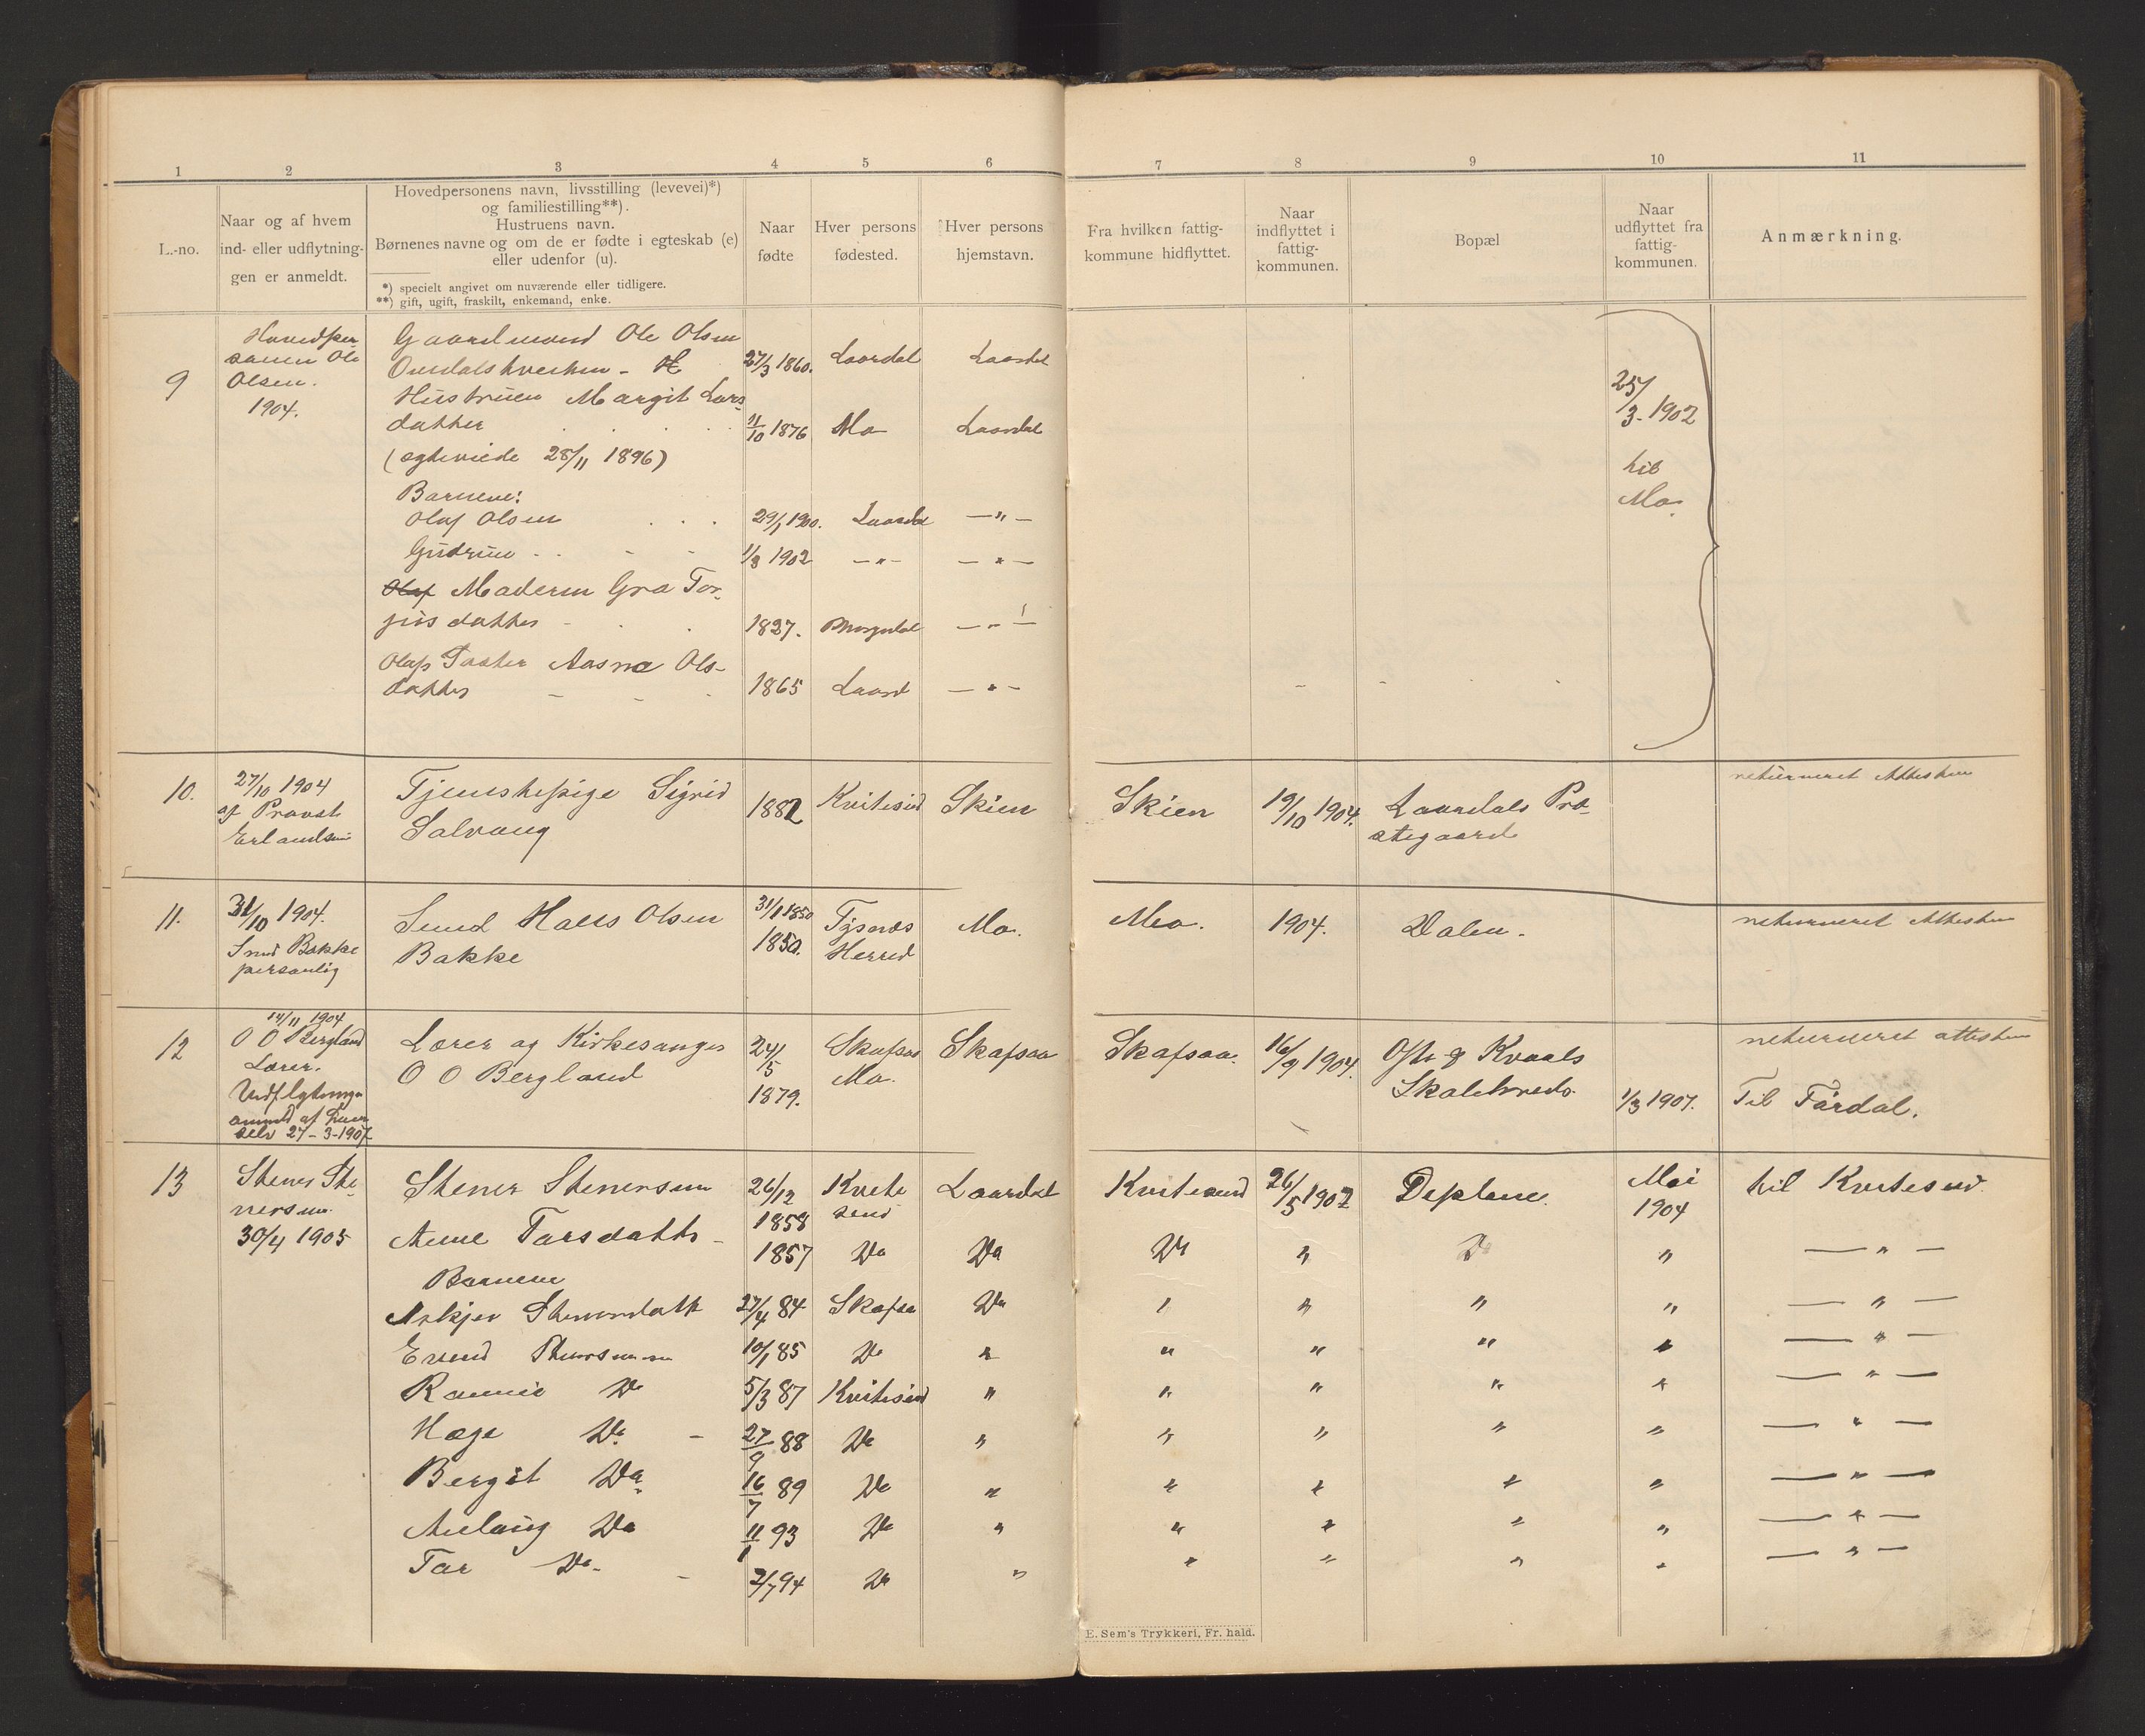 1 2 3 4 5 6 7 8 9 10 11
L.-no.
Naar og af hvem
ind- eller udflytnin-
gen er anmeldt.
Hovedpersonens navn, livsstilling (levevei)*)
og familiestilling**).
Hustruens navn.
Børnenes navne og om de er fødte i egteskab (e)
eller udenfor (u).
*) specielt angivet om nuværende eller tidligere.
**) gift, ugift, fraskilt, enkemand, enke.
Naar
fødte
Hver persons
fødested.
Hver persons
hjemstavn.
Fra hvilken fattig-
kommune hidflyttet.
Naar
indflyttet i
fattig-
kommunen.
Bopæl
Naar
udflyttet fra
fattig-
kommunen.
Anmærkning.
9
Hovedper
sonen Ole
Olsen.
1904.
Gaardmand Ole Olsen
27/3 1860. Laardal Laardal
Hustruen Margit Lars
datter 11/10 1876 Mo Laardal
(egteviede 28/11 1896)
Barnene:
Olaf Olsen 29/1 1900. Laardal —"—
Gudrun 1/3 1902 —"— —"—
Olaf Moderen Gro Tor-
gius datter 1827. —"—
Olafs Faster Aasne Ols-
datter 1865 Laard —"—
25/
3-1902
til
Mo.
10. 27/10 1904
af Provst
Erlandsen
Tjenestepige Sigrid
Salvang
1882 Kvitesid Skien Skien 19/10 1904. Laardals Præ-
stegaard
returneret Attesten
11. 31/10 1904.
Smed Bakke
personlig
Smed Hans Olsen
Bakke
31/1 1850
1850.
Tysnæs
Herred
Mo. Mo. 1904. Dalen. returneret Attesten
12 14/11 1904
O O Bergland
Lærer.
Udflytninge
anmeld af ham
selv 27-3-1907
Lærer og Kirkesanger
O O Bergland
24/
5
1879.
Skafsaa
Mo.
Skafsaa Skafsaa. 16/9 1904. Ofte & Kvaals
Skolekreds.
1/3 1907.
returneret attesten
Til Førdal.
13 Stener Ste-
nersen
30/4 1905
Stener Stenersen 26/12
1858
Kvite
seid
Laardal Kviteseid 26/5 1902 Deplane. Mai
1904
til Kvitesed.
Anne Tarsdatter 1857 Do Do Do " Do " —"—
Barnene
Askjer Stenersdatt 27/4 84 Skafsaa Do " " " " —"—
Evend Stenersen 10/1 85 Do " " " " " —"—
Rannei Do 5/3 87 Kvitesid " " " " " —"—
Hæge Do - 27/9 88 Do " " " " " —"—
Bergit Do 16/7 89 Do " " " " " —"—
Anlaug Do 11/1 93 Do " " " " " —"—
Tor Do - 2/7 94 Do " " " " " —"—
E. Sem's Trykkeri, Fr. hald.